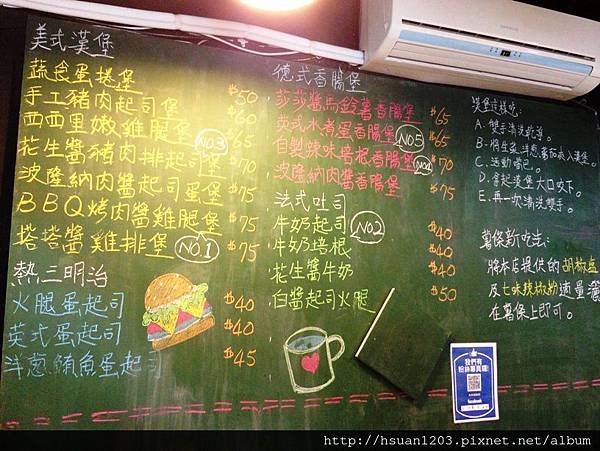 美式漢堡
蔬食蛋捲堡 $50
手工豬肉起司堡 $60
西西里嫩雞腿堡 NO3 $65
花生醬豬肉排起司堡 $70
波隆納肉醬起司蛋堡 $75
BBQ烤肉醬雞腿堡 $75
塔塔醬雞排堡 NO.1 $75
熱三明治
火腿蛋起司 $40
英式蛋起司 $40
洋蔥鮪魚蛋起司 $45
德式香腸堡
莎莎醬馬鈴薯香腸堡 $65
英式水煮蛋香腸堡 NO5 $65
自製辣味培根香腸堡 $70
波隆納肉醬香腸堡 $75
法式吐司
牛奶起司 NO2 $40
牛奶培根 $40
花生醬牛奶 $40
白醬起司火腿 $50
漢堡這樣吃:
A. 雙手清洗乾淨。
B. 將生菜.洋蔥.蕃茄夾入漢堡。
C. 活動嘴巴。
D. 拿起漢堡大口咬下。
E. 再一次清洗雙手。
薯條新吃法:
將本店提供的胡椒鹽
及七味辣椒粉適量灑
在薯條上即可。
我們有
粉絲專頁囉!
facebook
http://hsuan1203.pixnet.net/album